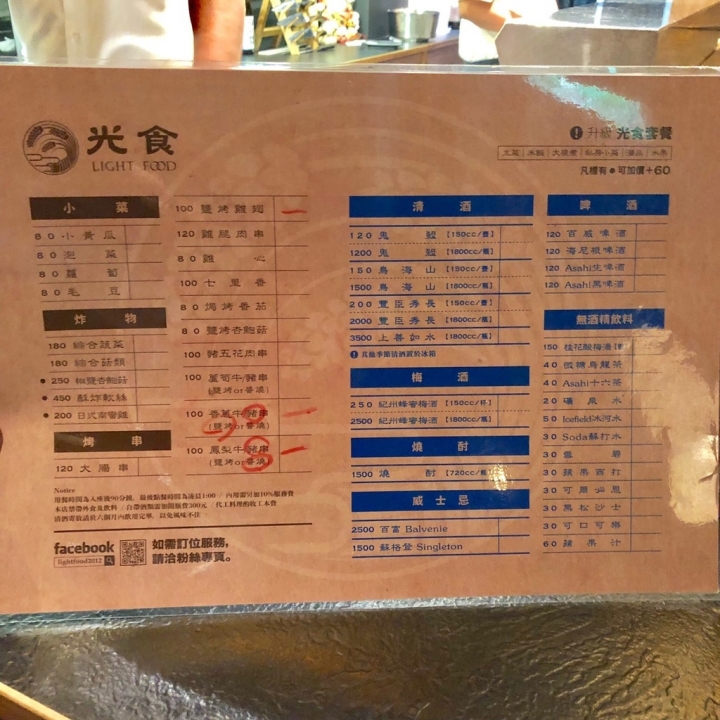 光食
LIGHT FOOD
! 升級 光食套餐
凡標有●可加價+60
小菜
80 小黃瓜
80 泡菜
80 蘿蔔
80 毛豆
炸物
180 綜合蔬菜
180 綜合菇類
● 250 椒鹽杏鮑菇
● 450 酥炸軟絲
● 200 日式南蠻雞
烤串
120 大腸串
100 鹽烤雞翅
120 雞腿肉串
80 雞心
100 七里香
80 焗烤番茄
80 鹽烤杏鮑菇
100 豬五花肉串
100 蘆筍牛/豬串
(鹽烤or醬燒)
100 香蔥牛/豬串
(鹽烤or醬燒)
100 鳳梨牛/豬串
(鹽烤or醬燒)
Notice
用餐時間為入座後90分鐘，最後點餐時間為凌晨1:00 / 內用需另加10%服務費
本店禁帶外食及飲料 / 自帶酒類需加開瓶費300元 / 代工料理酌收工本費
清酒寄放請於六個月內飲用完畢，以免風味不佳
facebook
lightfood2012
如需訂位服務，
請洽粉絲專頁。
清酒
120 鬼殺 [150cc/壺]
1200 鬼殺 [1800cc/瓶]
150 鳥海山 [150cc/壺]
1500 鳥海山 [1800cc/瓶]
200 豐臣秀長 [150cc/壺]
2000 豐臣秀長 [1800cc/瓶]
3500 上善如水 [1800cc/瓶]
! 其他季節清酒置於冰箱
梅酒
250 紀州蜂蜜梅酒 [150cc/杯]
2500 紀州蜂蜜梅酒 [1800cc/瓶]
燒酎
1500 燒酎 [720cc/瓶]
威士忌
2500 百富 Balvenie
1500 蘇格登 Singleton
啤酒
120 百威啤酒
120 海尼根啤酒
120 Asahi生啤酒
120 Asahi黑啤酒
無酒精飲料
150 桂花酸梅湯
40 微糖烏龍茶
40 Asahi十六茶
20 礦泉水
50 Icefield冰河水
30 Soda蘇打水
30 雪碧
30 蘋果西打
30 可爾必思
30 黑松沙士
30 可口可樂
60 蘋果汁